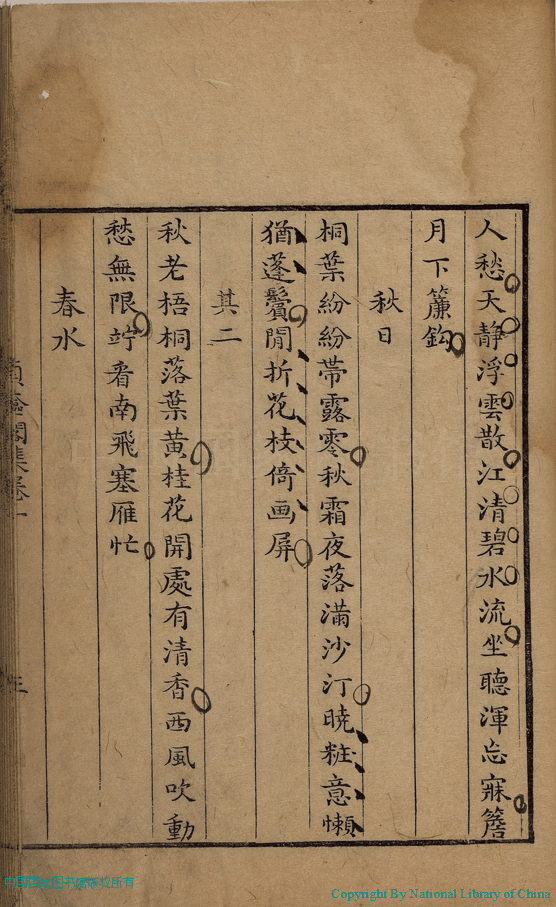 人愁天静浮雲散江清碧水流坐聽渾忘寐簷
月下簾鈎
秋日
桐葉紛紛帶露零秋霜夜落滿沙汀曉粧意懶
猶蓬鬢閒折花枝倚画屏
其二
秋老梧桐落葉黄桂花開處有清香西風吹動
愁無限竚看南飛塞雁忙
春水
Copyright By National Library of China